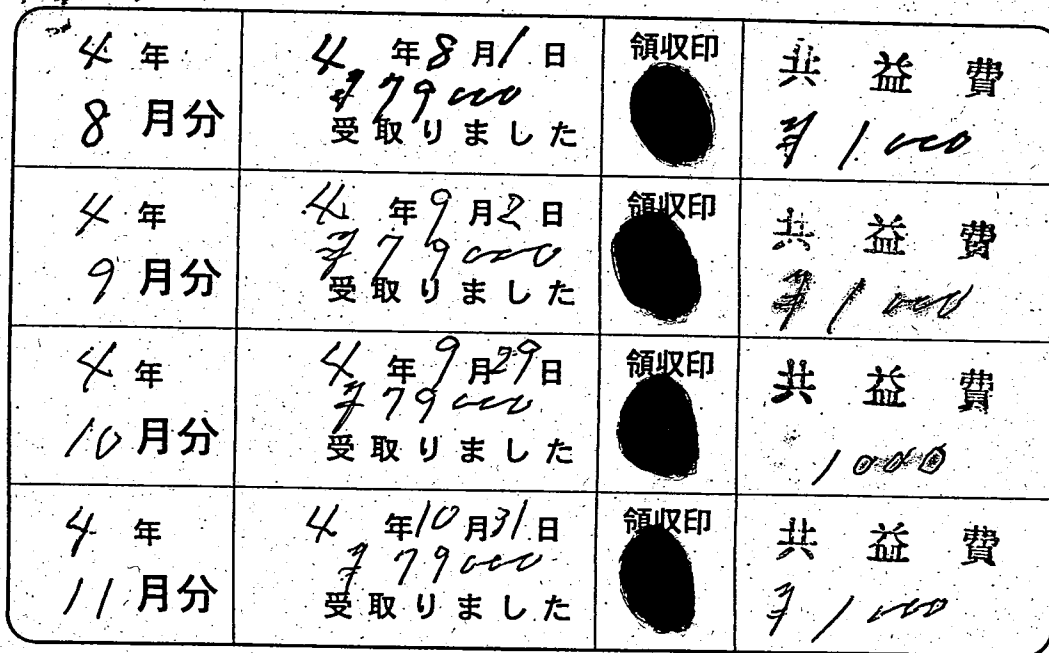 4 年
8 月分
4 年 8 月 1 日
¥79000
受取りました
領収印
共益費
¥1000
4 年
9 月分
4 年 9 月 2 日
¥79000
受取りました
領収印
共益費
¥1000
4 年
10 月分
4 年 9 月 29 日
¥79000
受取りました
領収印
共益費
1000
4 年
11 月分
4 年 10 月 31 日
¥79000
受取りました
領収印
共益費
¥1000